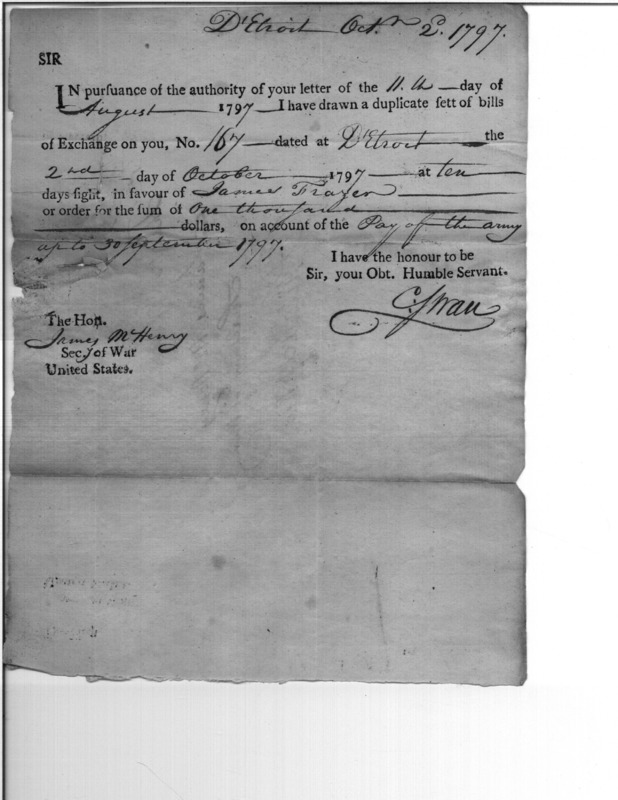 D'Etroit Octr. 2d. 1797.
SIR
IN purſuance of the authority of your letter of the 11.th day of
August 1797 I have drawn a duplicate ſett of bills
of Exchange on you, No. 167 dated at D'Etroit the
2nd day of October 1797 at ten
days ſight, in favour of James Frazer
or order for the ſum of One thousand
dollars, on account of the Pay of the army
up to 30 September 1797.
I have the honour to be
Sir, your Obt. Humble Servant.
C. Swan
The Hon.
James McHenry
Sec.y of War
United States.